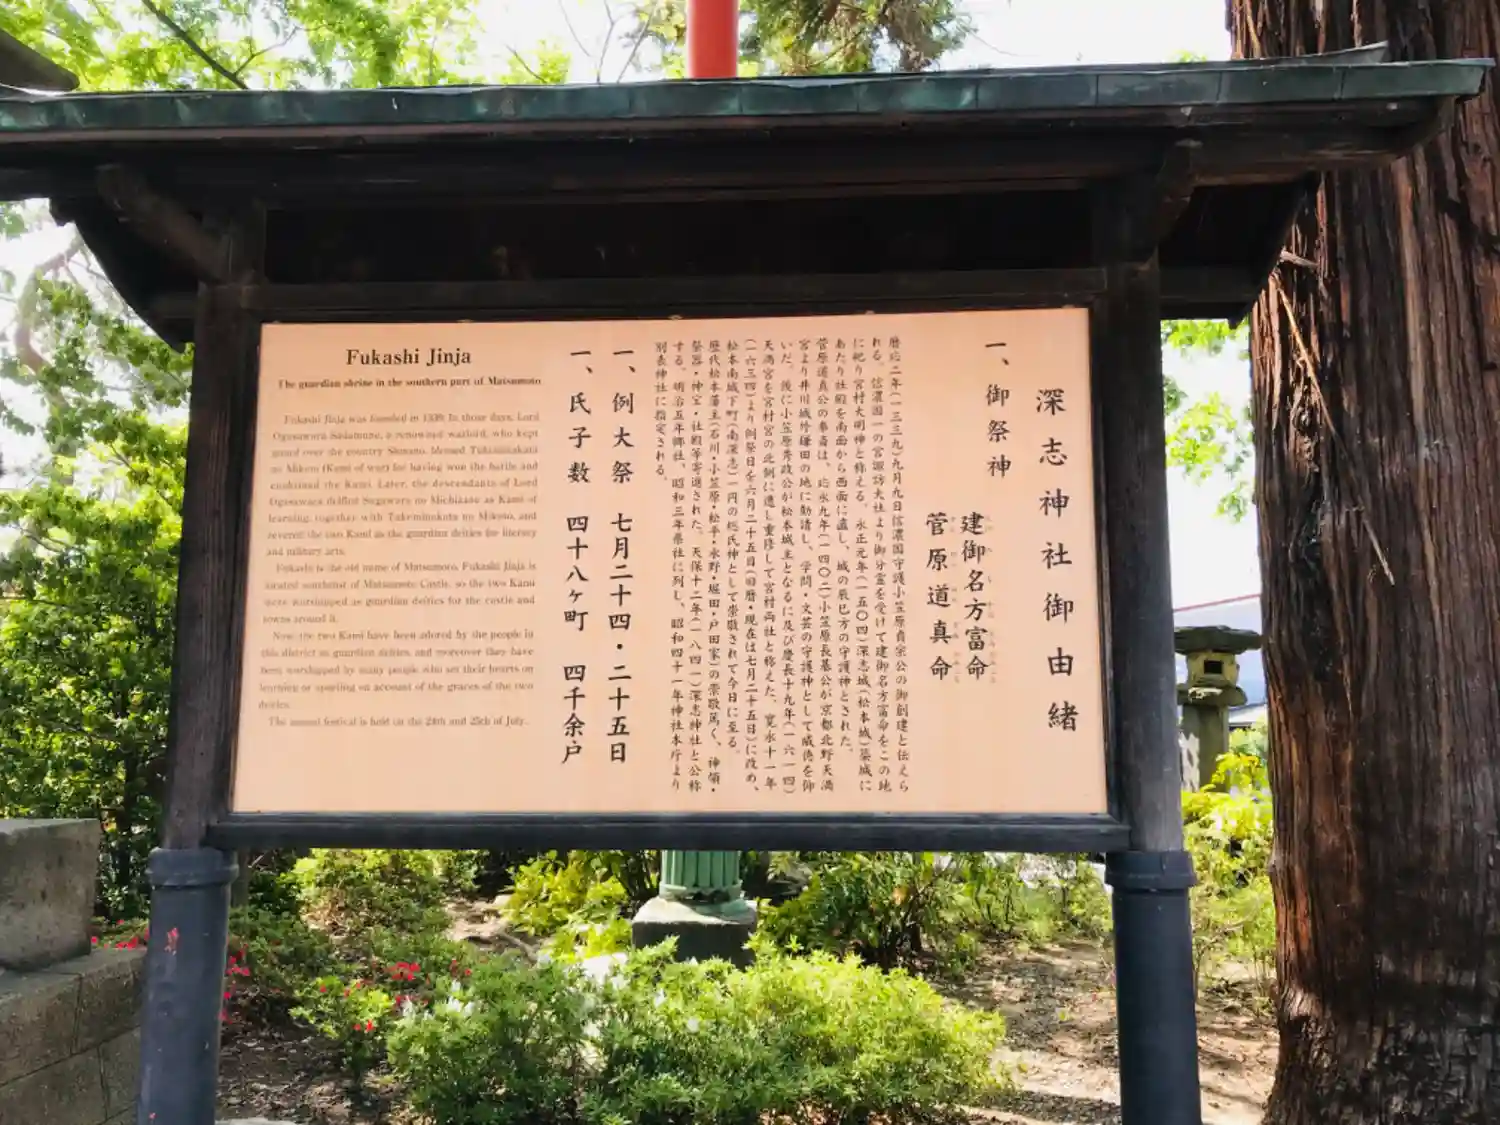 深志神社御由緒
一、御祭神
建御名方富命
菅原道真命
暦応二年(一三三九)九月九日信濃国守護小笠原貞宗公の御創建と伝えら
れる。信濃国一の宮諏訪大社より御分霊を受けて建御名方富命をこの地
に祀り宮村大明神と称える。永正元年(一五〇四)深志城(松本城)築城に
あたり社殿を南面から西面に直し、城の辰巳方の守護神とされた。
菅原道真公の奉斎は、応永九年(一四〇二)小笠原長基公が京都北野天満
宮より井川城外鎌田の地に勧請し、学問・文芸の守護神として威徳を仰
いだ。後に小笠原秀政公が松本城主となるに及び慶長十九年(一六一四)
天満宮を宮村宮の北側に遷し重隆して宮村両社と称えた。寛永十一年
(一六三四)より例祭日を六月二十五日(旧暦・現在は七月二十五日)に改め、
松本南城下町(南深志)一円の総氏神として崇敬されて今日に至る。
歴代松本藩主(石川・小笠原・松平・水野・堀田・戸田家)の崇敬篤く、神領・
祭器・神宝・社殿等寄進された。天保十二年(一八四一)深志神社と公称
する。明治五年郷社、昭和三年県社に列し、昭和四十一年神社本庁より
別表神社に指定される。
一、例大祭 七月二十四・二十五日
一、氏子数 四十八ヶ町 四千余戸
Fukashi Jinja
The guardian shrine in the southern part of Matsumoto
Fukashi Jinja was founded in 1339. In those days, Lord
Ogasawara Sadamune, a renowned warlord, who kept
guard over the country Shinano, blessed Takeminakata
no Mikoto (Kami of war) for having won the battle and
enshrined the Kami. Later, the descendants of Lord
Ogasawara deified Sugawara no Michizane as Kami of
learning, together with Takeminakata no Mikoto, and
revered the two Kami as the guardian deities for literacy
and military arts.
Fukashi is the old name of Matsumoto. Fukashi Jinja is
located southeast of Matsumoto Castle, so the two Kami
were worshipped as guardian deities for the castle and
towns around it.
Now the two Kami have been adored by the people in
this district as guardian deities, and moreover they have
been worshipped by many people who set their hearts on
learning or sporting on account of the graces of the two
deities.
The annual festival is held on the 24th and 25th of July.